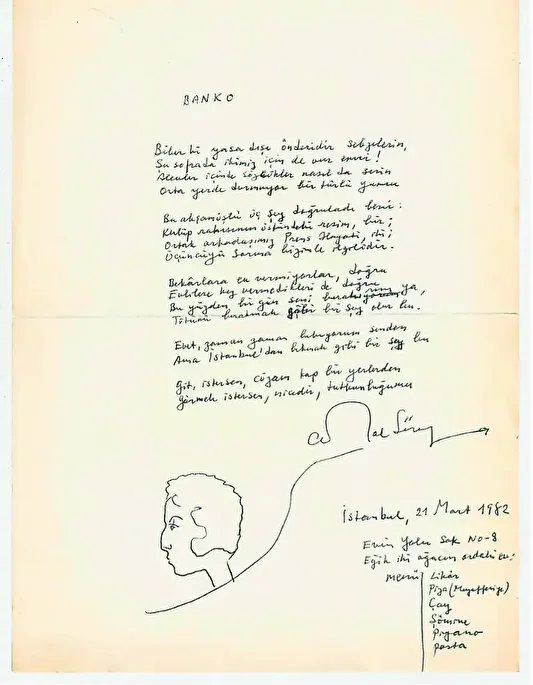 BANKO
Biber ki yasa dışı önderidir sebzelerin,
Şu sofrada ikimiz için de var emri!
Alevler içinde sözcükler nasıl da serin
Orta yerde durmuyor bir türlü yarısı
Bu akşamüstü üç şey doğruladı beni:
Kulüp rakısının üstündeki resim, bir;
Ortak arkadaşımız Prens Hayati, iki;
Üçüncüyü sorma bizimle ilgilidir.
Bekârlara ev vermiyorlar, doğru
Evlilere kız vermedikleri de doğru
Bu yüzden bir gün seni ya,
Tütünü bırakmak gibi bir şey olur bu.
Evet, zaman zaman bıkıyorum senden
Ama İstanbul'dan bıkmak gibi bir şey bu
Git, istersen, cüzam kap bir yerlerden
Görmek istersen, nicedir, tutkunluğumu
Cemal Süreya
İstanbul, 21 Mart 1982
Evin Yolu Sok No-8
Eğik iki ağacın ordaki ev!
menü Likör
Piza (Muzefferiye)
Çay
Şömine
Piyano
pasta